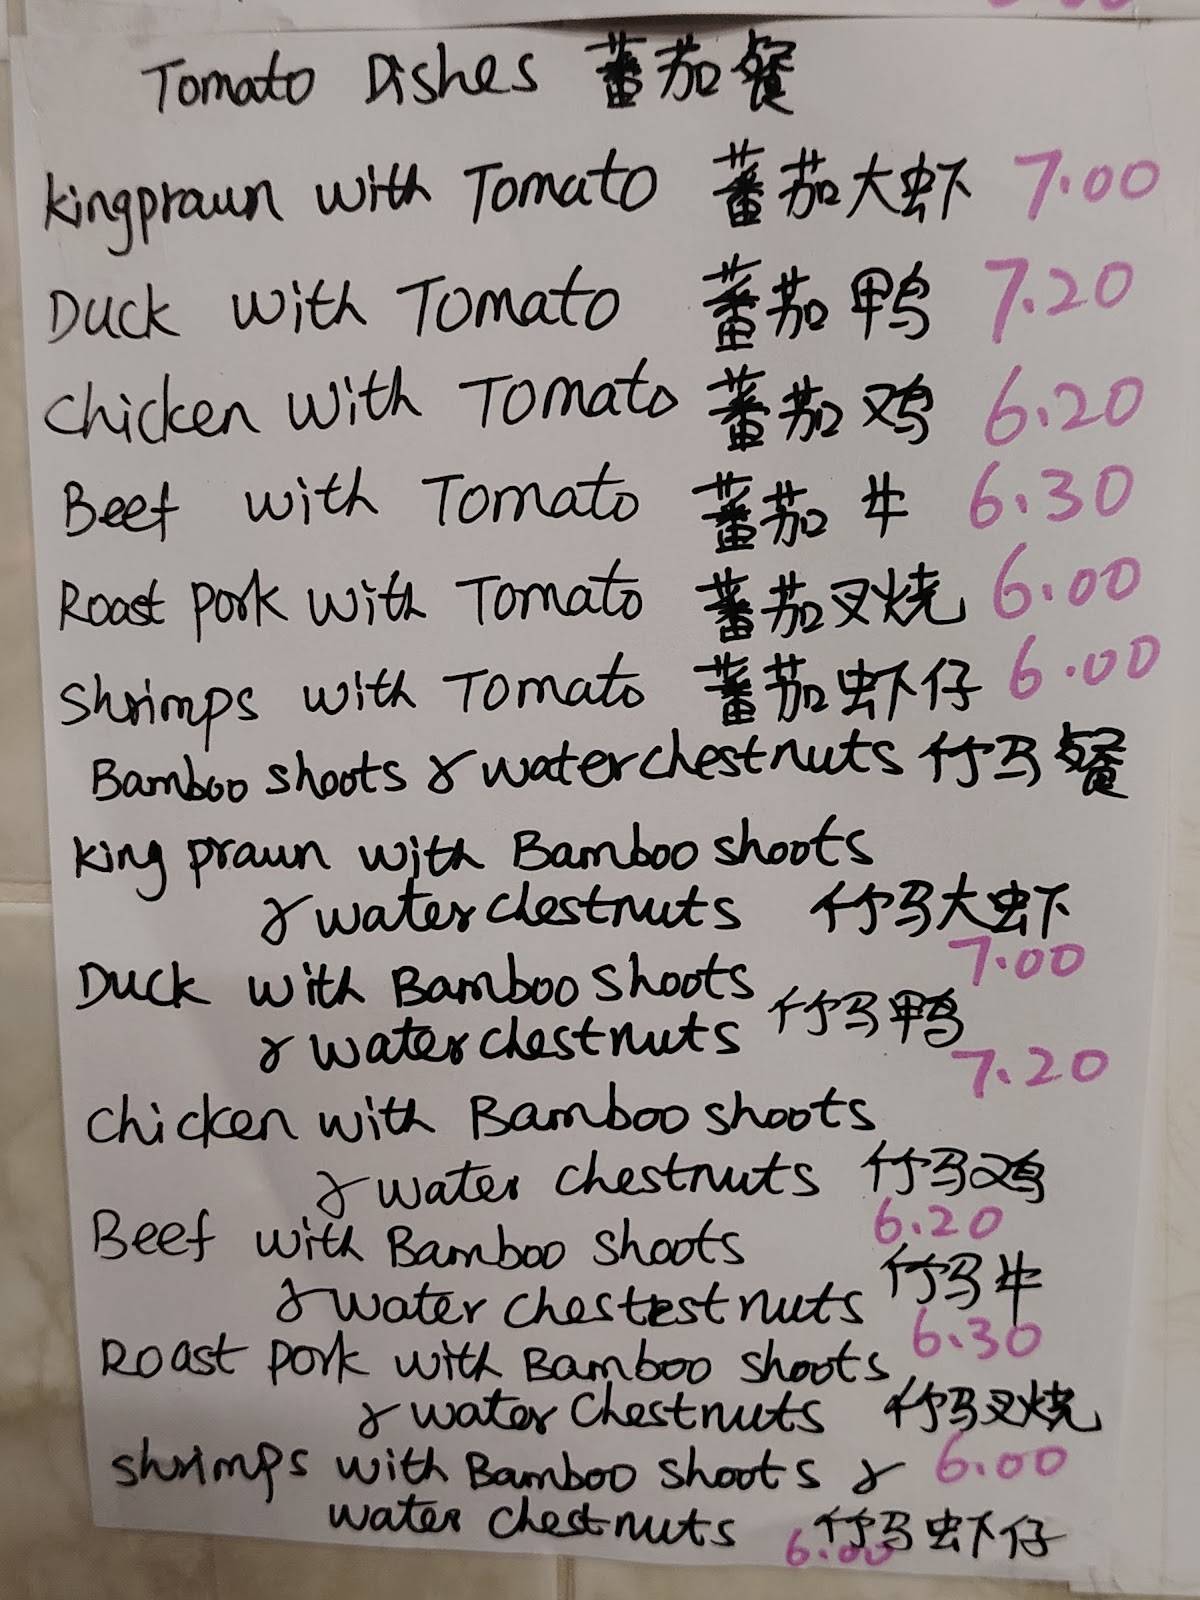 Tomato Dishes 蕃茄餐
kingprawn with Tomato 蕃茄大虾 7.00
Duck with Tomato 蕃茄鸭 7.20
chicken with Tomato 蕃茄鸡 6.20
Beef with Tomato 蕃茄牛 6.30
Roast pork with Tomato 蕃茄叉烧 6.00
shrimps with Tomato 蕃茄虾仔 6.00
Bamboo shoots & water chestnuts 竹马餐
king prawn with Bamboo shoots
& water chestnuts 竹马大虾
7.00
Duck with Bamboo shoots
& water chestnuts 竹马鸭
7.20
chicken with Bamboo shoots
& water chestnuts 竹马鸡
6.20
Beef with Bamboo shoots
& water chestestnuts 竹马牛
6.30
Roast pork with Bamboo shoots
& water chestnuts 竹马叉烧
shrimps with Bamboo shoots & 6.00
water chestnuts 竹马虾仔
6.00